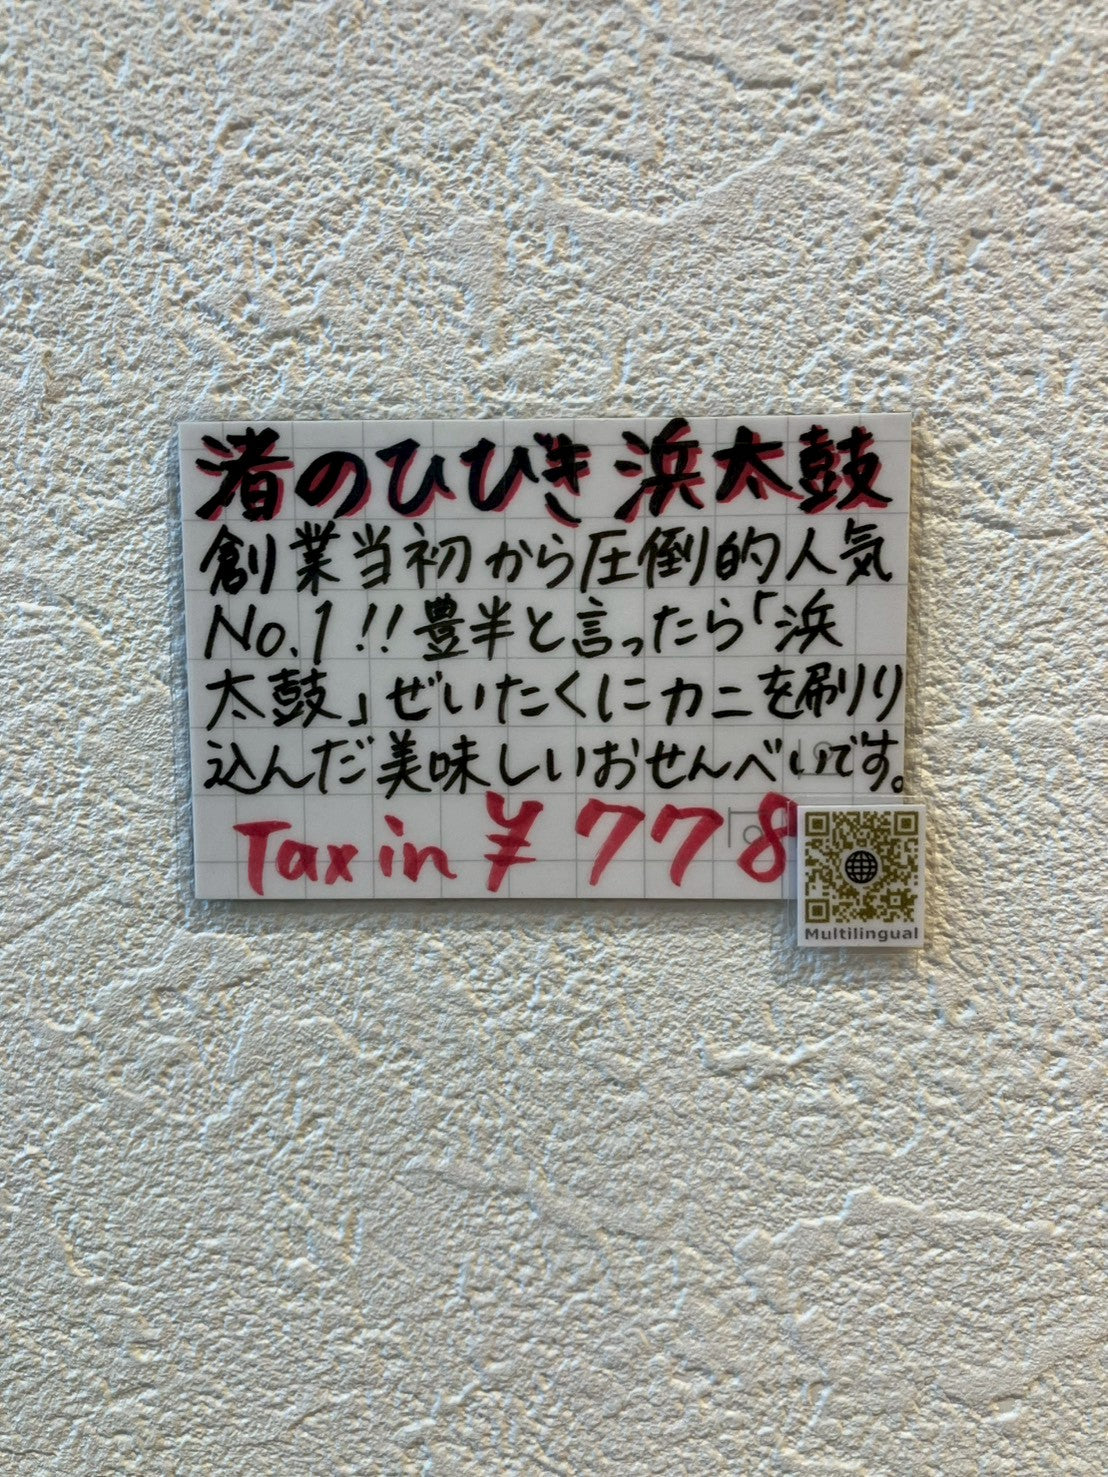 渚のひびき 浜太鼓
創業当初から圧倒的人気
No.1!!豊半と言ったら「浜
太鼓」ぜいたくにカニを刷り
込んだ美味しいおせんべいです。
Tax in ¥778
Multilingual